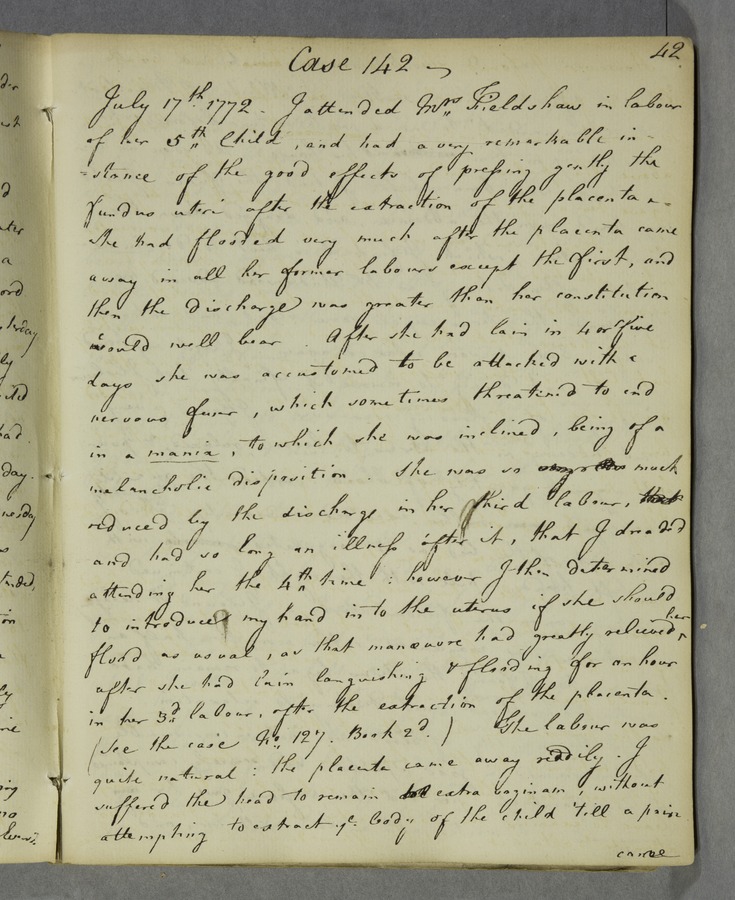 42
Case 142
July 17th 1772. I attended Mrs Fieldshaw in labour
of her 5th Child, and had a very remarkable in-
=stance of the good effects of pressing gently the
fundus uteri after the extraction of the placenta.
She had flooded very much after the placenta came
away in all her former labours except the first, and
then the discharge was greater than her constitution
would well bear. After she had lain in 4 or five
days she was accustomed to be attacked with a
nervous fever, which sometimes threatened to end
in a mania, to which she was inclined, being of a
melancholic disposition. She was so much
reduced by the discharge in her third labour, that
and had so long an illness after it, that I dreaded
attending her the 4th time: however I then determined
to introduce my hand into the uterus if she should
flood as usual, as that manœuvre had greatly relieved her,
after she had lain languishing & flooding for an hour
in her 3d labour, after the extraction of the placenta.
(See the case No. 127. Book 2d.) The labour was
quite natural: the placenta came away readily. I
suffered the head to remain extra vaginam, without
attempting to extract ye. body of the child 'till a pain
came
day
day.